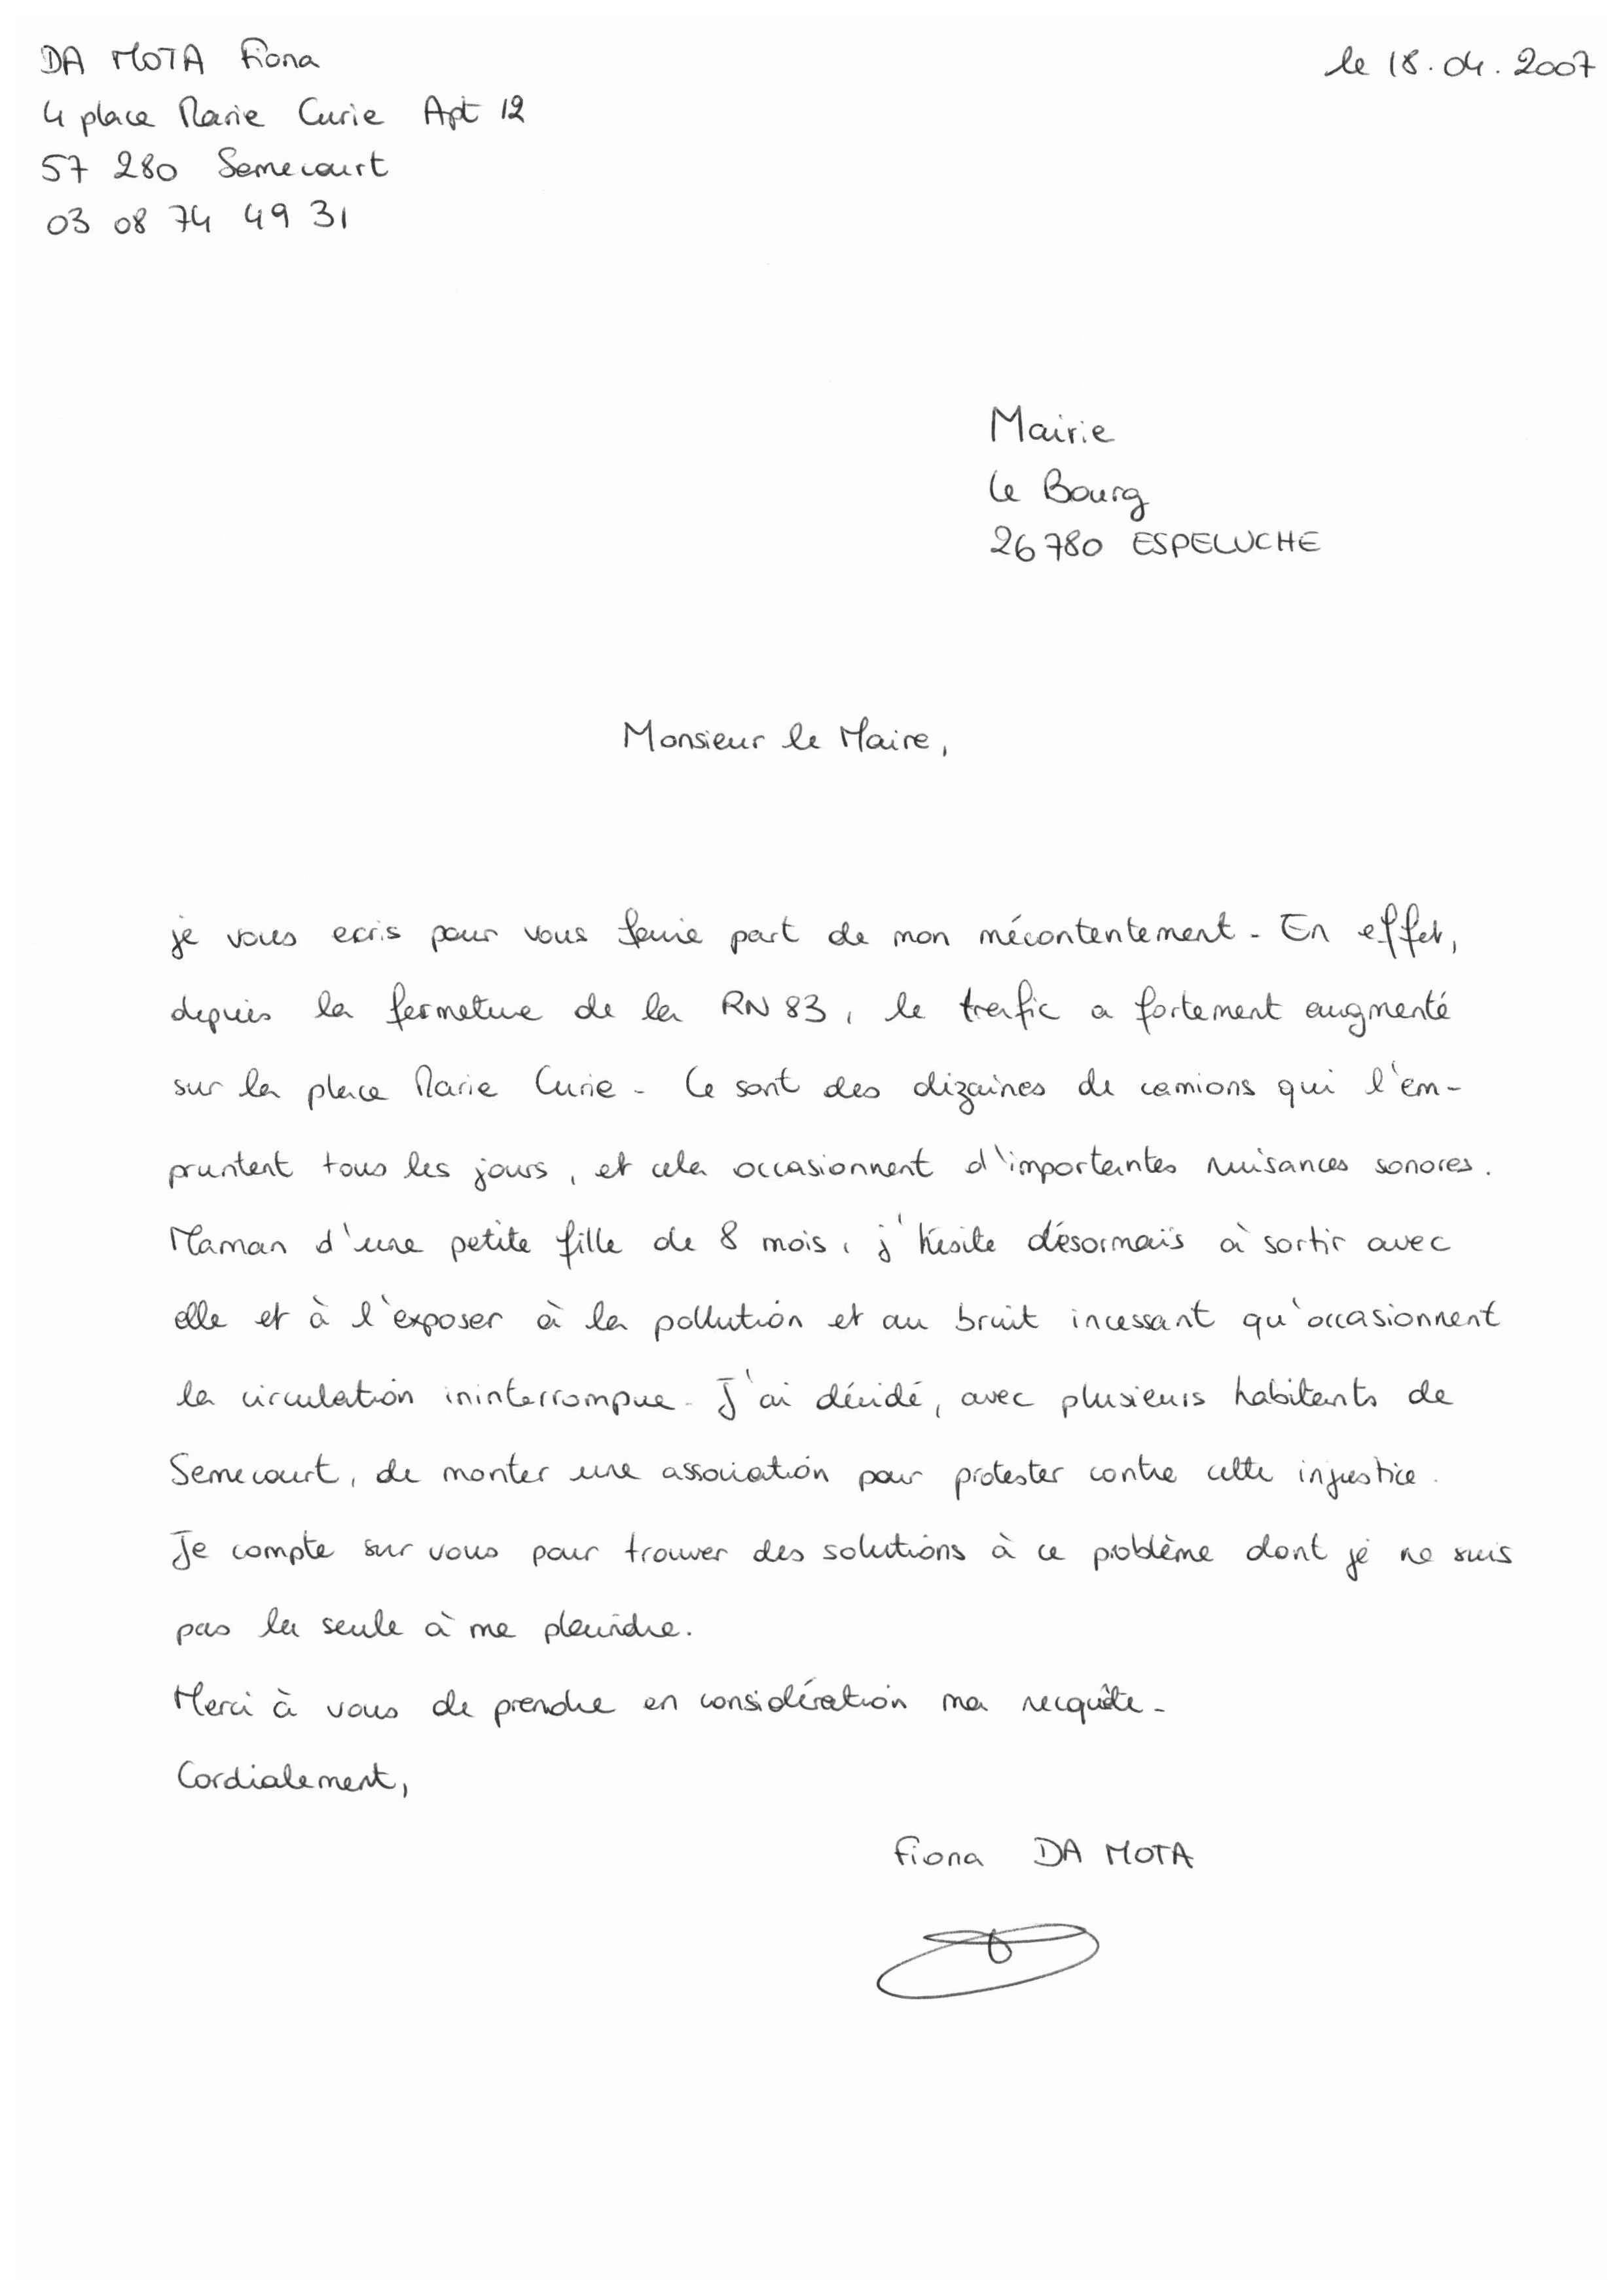 DA MOTA Fiona
le 18.04.2007
4 place Marie Curie Apt 12
57 280 Semecourt
03 08 74 49 31
Mairie
Le Bourg
26780 ESPELUCHE
Monsieur le Maire,
je vous ecris pour vous faire part de mon mécontentement. En effet,
depuis la fermeture de la RN 83, le trafic a fortement augmenté
sur la place Marie Curie. Ce sont des dizaines de camions qui l'em-
pruntent tous les jours, et cela occasionnent d'importantes nuisances sonores.
Maman d'une petite fille de 8 mois, j'hésite désormais à sortir avec
elle et à l'exposer à la pollution et au bruit incessant qu'occasionnent
la circulation ininterrompue. J'ai décidé, avec plusieurs habitants de
Semecourt, de monter une association pour protester contre cette injustice.
Je compte sur vous pour trouver des solutions à ce problème dont je ne suis
pas la seule à me plaindre.
Merci à vous de prendre en considération ma recquête.
Cordialement,
Fiona DA MOTA